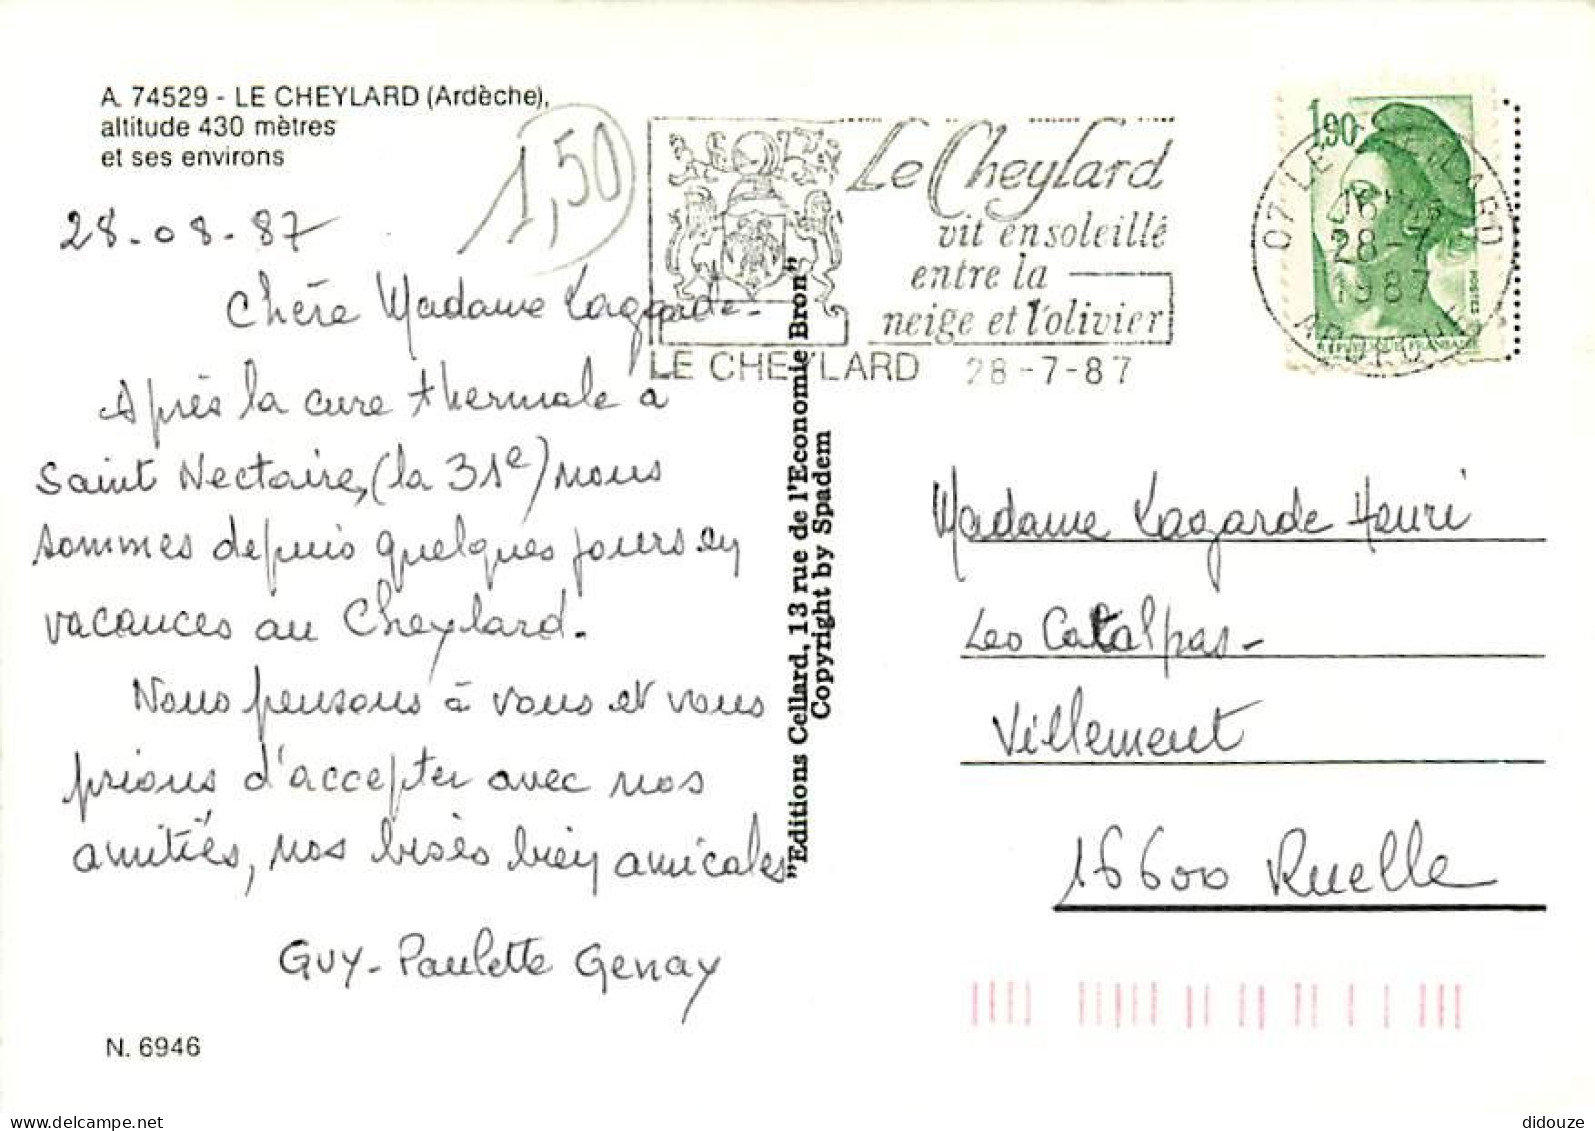 A. 74529 - LE CHEYLARD (Ardèche),
altitude 430 mètres
et ses environs
1,50
28-08-87
Chère Madame Lagarde-
Après la cure thermale à
Saint Nectaire, (la 31e) nous
sommes depuis quelques jours en
vacances au Cheylard.
Nous pensons à vous et vous
prions d'accepter avec nos
amitiés, nos bisès bien amicales
GUY-Paulette Genay
N. 6946
"Editions Cellard, 13 rue de l'Economie Bron"
Copyright by Spadem
Le Cheylard
vit ensoleillé
entre la
neige et l'olivier
LE CHEYLARD 28-7-87
1,90
07 LE CHEYLARD
28-7
1987
ARDECHE
POSTES
REPUBLIQUE FRANÇAISE
Madame Lagarde Henri
Les Catalpas-
Villement
16600 Ruelle
didouze